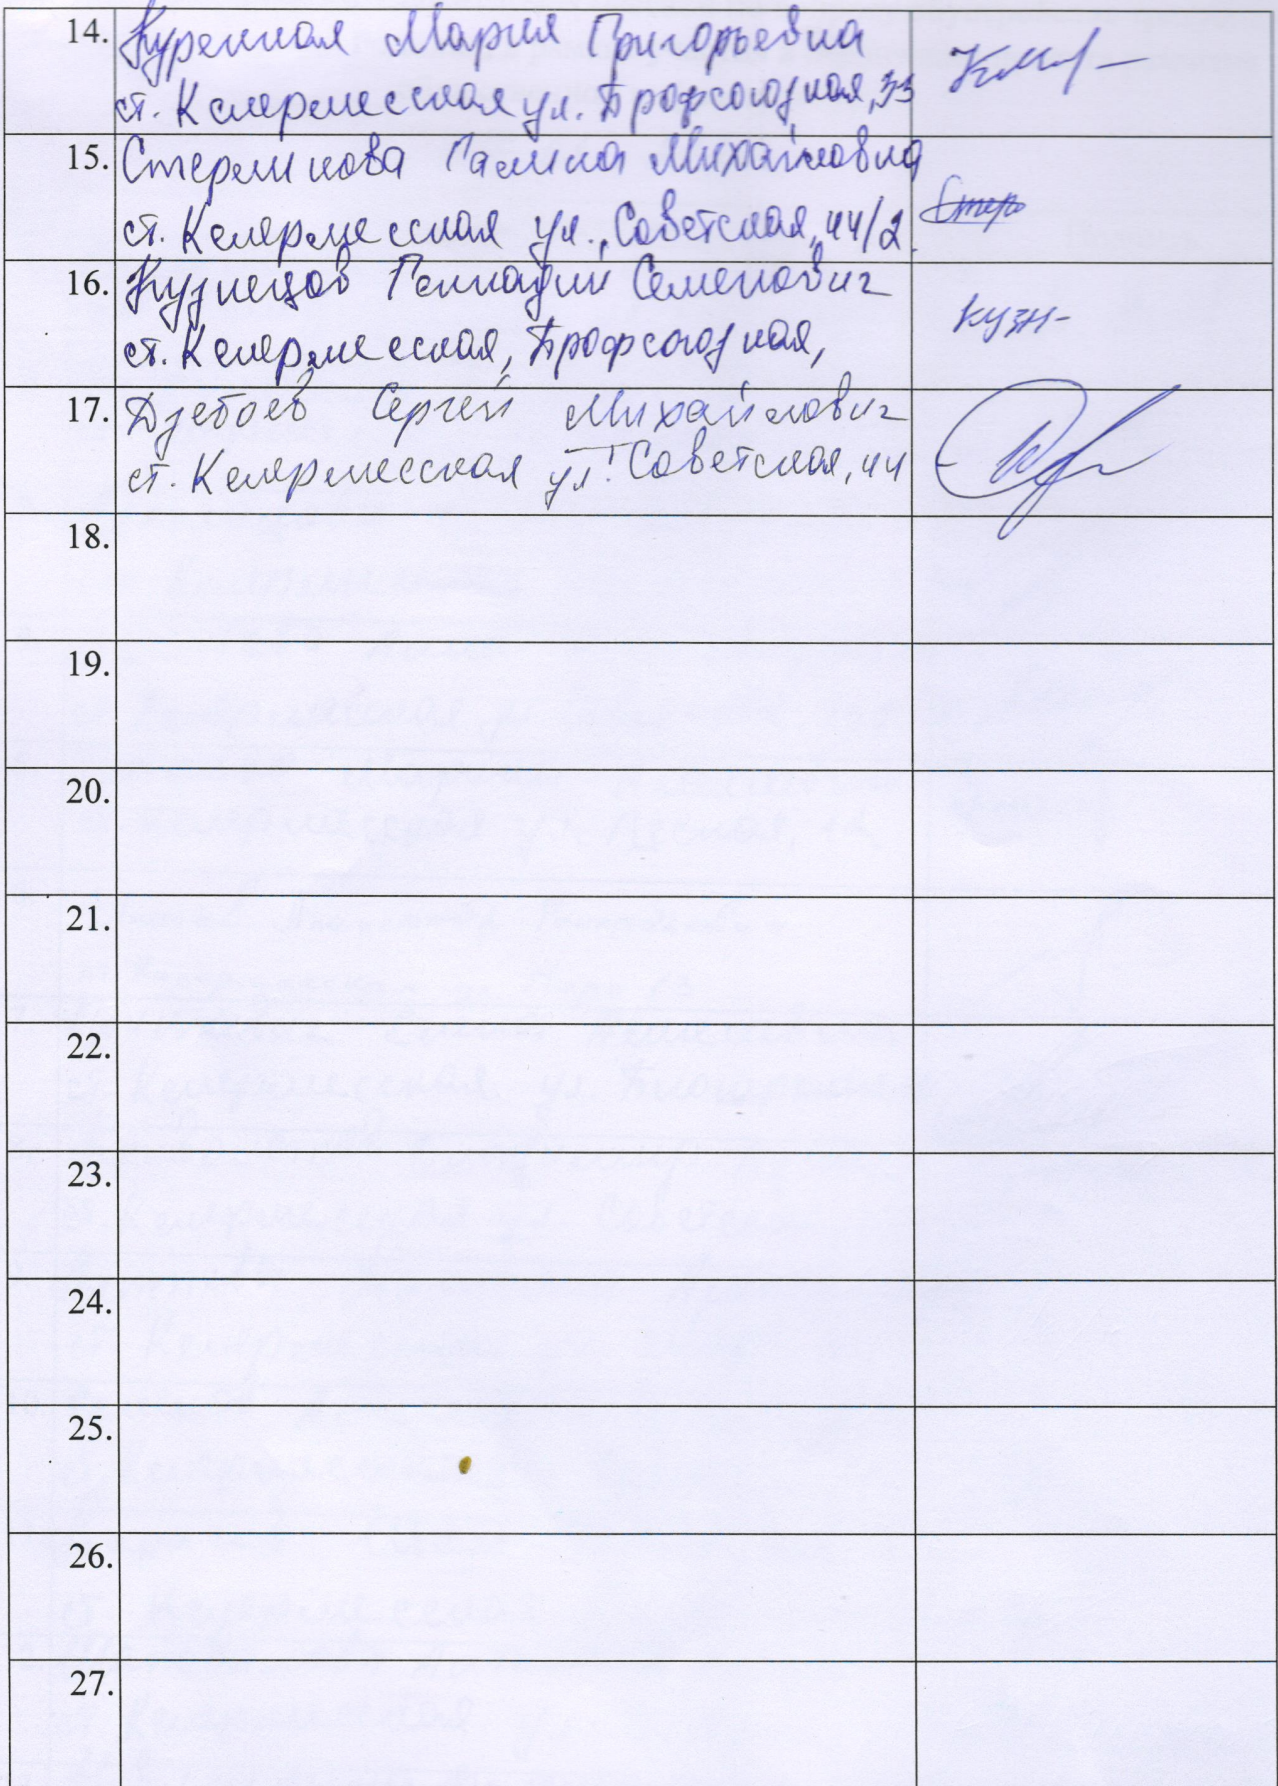 14. Куренная Мария Григорьевна
ст. Келермесская ул. Профсоюзная, 33
15. Стерликова Галина Михайловна
ст. Келермесская ул. Советская, 44/2
16. Кузнецов Геннадий Семенович
кузн-
ст. Келермесская, Профсоюзная,
17. Дзебоев Сергей Михайлович
ст. Келермесская ул. Советская, 44
18.
19.
20.
21.
22.
23.
24.
25.
26.
27.